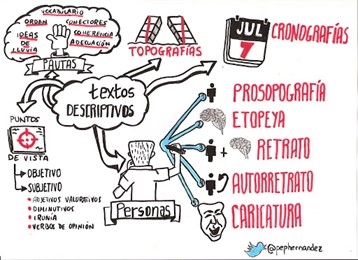 VOCABULARIO
ORDEN
CONECTORES
IDEAS
DE
LLUVIA
COHERENCIA
ADECUACIÓN
PAUTAS
TOPOGRAFÍAS
JUL
7
CRONOGRAFÍAS
textos
DESCRIPTIVOS
PUNTOS
DE VISTA
OBJETIVO
SUBJETIVO
ADJETIVOS VALORATIVOS
DIMINUTIVOS
IRONÍA
VERBOS DE OPINIÓN
Personas
PROSOPOGRAFÍA
ETOPEYA
+ RETRATO
AUTORRETRATO
CARICATURA
@pephernandez